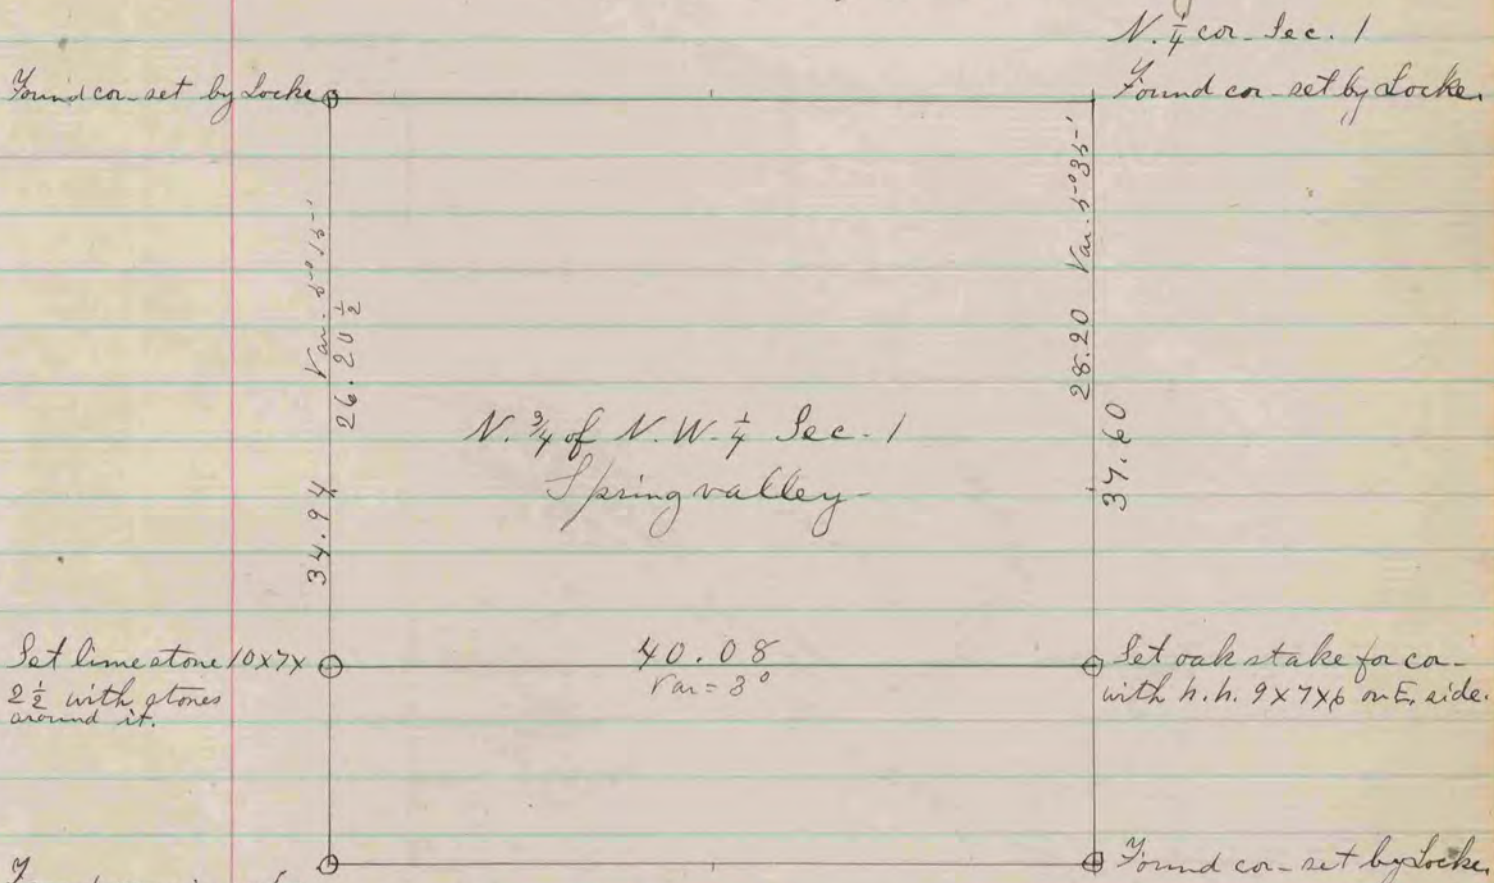 N. 1/4 cor. Sec. 1
Found cor. set by Locke
Found cor. set by Locke.
Var. 5° 15'
26.20 1/2
Var. 5° 35'
28.20
N. 3/4 of N.W. 1/4 Sec. 1
Springvalley
34.94
37.60
Set limestone 10x7x
2 1/2 with stones
around it.
40.08
Var = 3°
Set oak stake for cor.
with h.h. 9x7x6 on E. side.
Found cor. set by Locke.